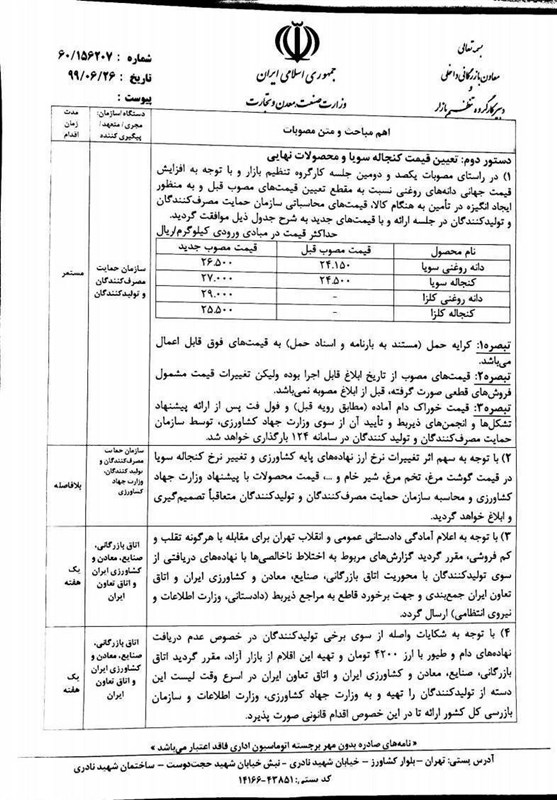 بسمه تعالی
معاون بازرگانی داخلی
و
دبیر کارگروه تنظیم بازار
جمهوری اسلامی ایران
وزارت صنعت، معدن و تجارت
شماره : ۶۰/۱۵۶۲۰۷
تاریخ : ۹۹/۰۶/۲۶
پیوست :
اهم مباحث و متن مصوبات
دستگاه/سازمان: مجری/متعهد/ پیگیری کننده
مدت زمان اقدام
دستور دوم: تعیین قیمت کنجاله سویا و محصولات نهایی
۱) در راستای مصوبات یکصد و دومین جلسه کارگروه تنظیم بازار و با توجه به افزایش
قیمت جهانی دانه‌های روغنی نسبت به مقطع تعیین قیمت‌های مصوب قبل و به منظور
ایجاد انگیزه در تأمین به هنگام کالا، قیمت‌های محاسباتی سازمان حمایت مصرف‌کنندگان
و تولیدکنندگان در جلسه ارائه و با قیمت‌های جدید به شرح جدول ذیل موافقت گردید.
حداکثر قیمت در مبادی ورودی کیلوگرم/ریال
نام محصول قیمت مصوب قبل قیمت مصوب جدید
دانه روغنی سویا ۲۴.۱۵۰ ۲۶.۵۰۰
کنجاله سویا ۲۴.۵۰۰ ۲۷.۰۰۰
دانه روغنی کلزا - ۲۹.۰۰۰
کنجاله کلزا - ۲۵.۵۰۰
تبصره۱: کرایه حمل (مستند به بارنامه و اسناد حمل) به قیمت‌های فوق قابل اعمال
می‌باشد.
تبصره۲: قیمت‌های مصوب از تاریخ ابلاغ قابل اجرا بوده ولیکن تغییرات قیمت مشمول
فروش‌های قطعی صورت گرفته، قبل از ابلاغ مصوبه نمی‌باشد.
تبصره۳: قیمت خوراک دام آماده (مطابق رویه قبل) و فول فت پس از ارائه پیشنهاد
تشکل‌ها و انجمن‌های ذیربط و تأیید آن از سوی وزارت جهاد کشاورزی، توسط سازمان
حمایت مصرف‌کنندگان و تولید کنندگان در سامانه ۱۲۴ بارگذاری خواهد شد.
سازمان حمایت
مصرف‌کنندگان
و تولیدکنندگان
مستمر
۲) با توجه به سهم اثر تغییرات نرخ ارز نهاده‌های پایه کشاورزی و تغییر نرخ کنجاله سویا
در قیمت گوشت مرغ، تخم مرغ، شیر خام و ...، قیمت محصولات با پیشنهاد وزارت جهاد
کشاورزی و محاسبه سازمان حمایت مصرف‌کنندگان و تولیدکنندگان متعاقباً تصمیم‌گیری
و ابلاغ خواهد گردید.
سازمان حمایت
مصرف‌کنندگان و
تولید کنندگان،
وزارت جهاد
کشاورزی
بلافاصله
۳) با توجه به اعلام آمادگی دادستانی عمومی و انقلاب تهران برای مقابله با هرگونه تقلب و
کم فروشی، مقرر گردید گزارش‌های مربوط به اختلاط ناخالصی‌ها با نهاده‌های دریافتی از
سوی تولیدکنندگان با محوریت اتاق بازرگانی، صنایع، معادن و کشاورزی ایران و اتاق
تعاون ایران جمع‌بندی و جهت برخورد قاطع به مراجع ذیربط (دادستانی، وزارت اطلاعات و
نیروی انتظامی) ارسال گردد.
اتاق بازرگانی،
صنایع، معادن و
کشاورزی ایران
و اتاق تعاون
ایران
یک
هفته
۴) با توجه به شکایات واصله از سوی برخی تولیدکنندگان در خصوص عدم دریافت
نهاده‌های دام و طیور با ارز ۴۲۰۰ تومان و تهیه این اقلام از بازار آزاد، مقرر گردید اتاق
بازرگانی، صنایع، معادن و کشاورزی ایران و اتاق تعاون ایران در اسرع وقت لیست این
دسته از تولیدکنندگان را تهیه و به وزارت جهاد کشاورزی، وزارت اطلاعات و سازمان
بازرسی کل کشور ارائه تا در این خصوص اقدام قانونی صورت پذیرد.
اتاق بازرگانی،
صنایع، معادن و
کشاورزی ایران
و اتاق تعاون
ایران
یک
هفته
« نامه‌های صادره بدون مهر برجسته اتوماسیون اداری فاقد اعتبار می‌باشد »
آدرس پستی: تهران -بلوار کشاورز - خیابان شهید نادری - نبش خیابان شهید حجت‌دوست - ساختمان شهید نادری
کد پستی: ۴۳۸۵۱-۱۴۱۶۶